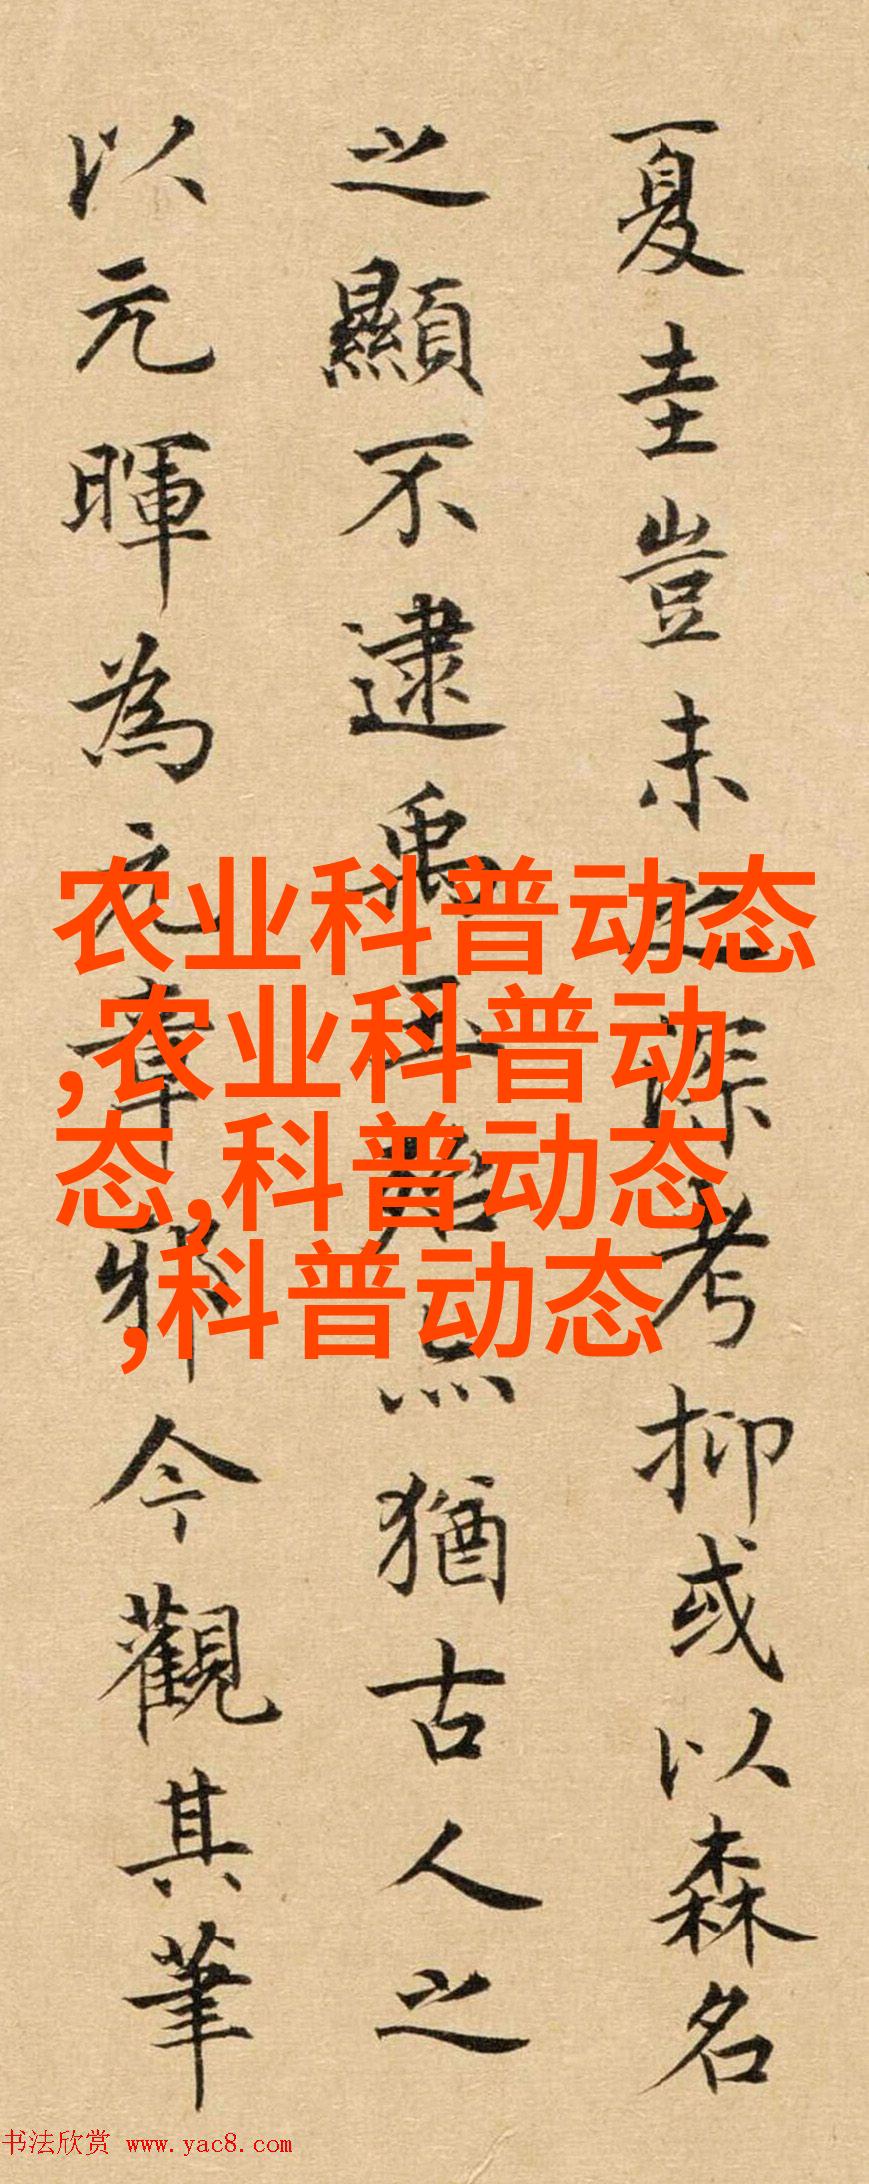 夏圭豈未之深考抑或以森名
之顯不逮禹玉然猶古人之
以元暉為元章邪今觀其筆
农业科普动态
,农业科普动
态,科普动态
,科普动态
书法欣赏 www.yac8.com